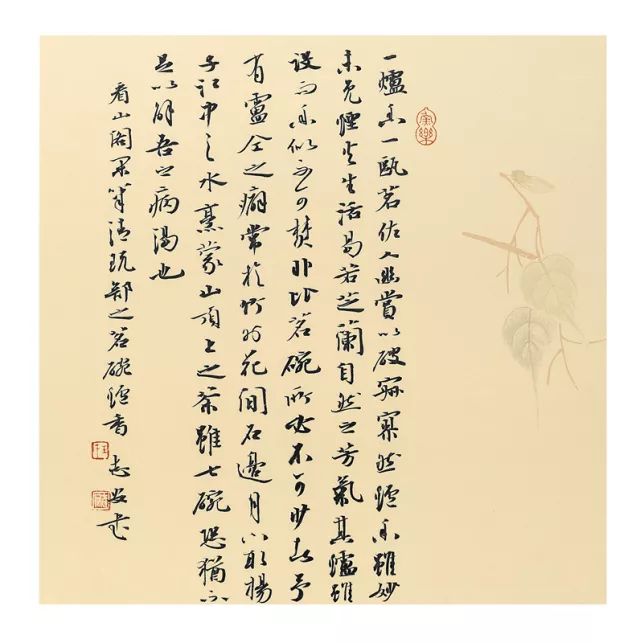 一爐香一甌茗佐人幽賞以破寂寞然爐香雖妙
未免煙火生活曷若芝蘭自然之芳氣其爐雖
設而香似可焚非比茗碗所必不可少故予
有盧仝之癖常於竹前花間石邊月下取楊
子江中之水烹蒙山頂上之茶雖七碗恐猶不
足以解吾之病渴也
看山閣閒筆清玩部之茗碗爐香 志